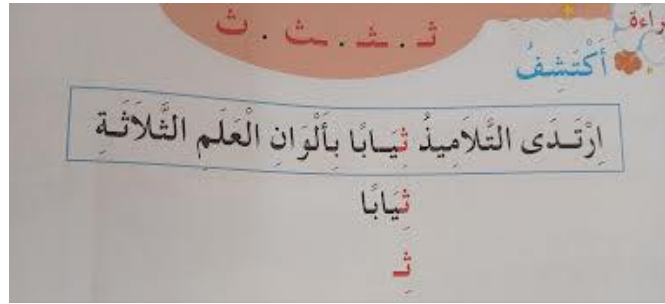 ثـ . ـثـ . ـث . ث
أَكْتَشِفُ
اِرْتَـدَى التَّلَامِيذُ ثِيَـابًا بِأَلْوَانِ الْعَلَمِ الثَّلَاثَـةِ
ثِيَابًا
ثِـ